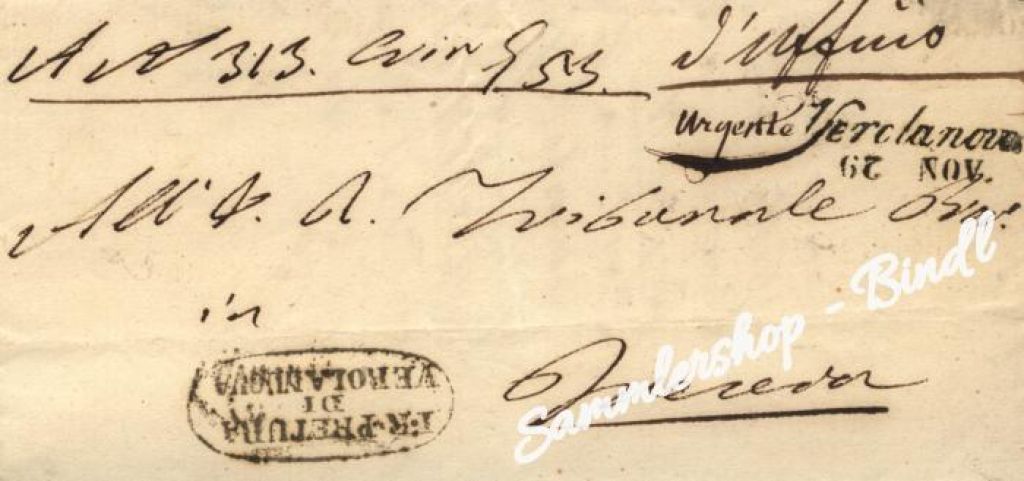 A N 313. Crim 853.
d'Ufficio
Urgente Verolanuova
29 NOV.
All' I. R. Tribunale Prov.
in
Brescia
I·R·PRETURA
DI
VEROLANUOVA
Sammlershop - Bindl